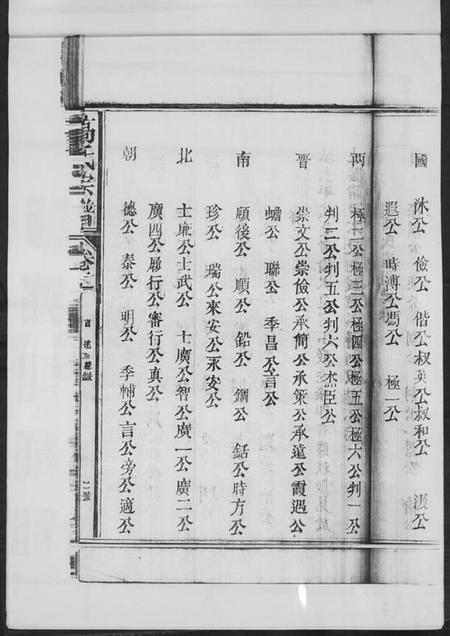 國 沭公 儉公 偕公叔英公叔和公 溵公
遐公 時溥公馮公 極一公
兩 極二公極三公極四公極五公極六公判一公
判二公判五公判六公杰臣公
晋 崇文公崇儉公承簡公承策公承遠公霞遇公
蟾公 聯公 季昌公言公
南 願後公 順公 鉛公 鋼公 銛公時方公
珍公 瑞公來安公永安公
北 士廉公士武公 士廣公智公廣一公廣二公
廣四公履行公審行公真公
朝 德公 泰公 明公 季輔公言公旁公適公
高氏宗譜 卷
首